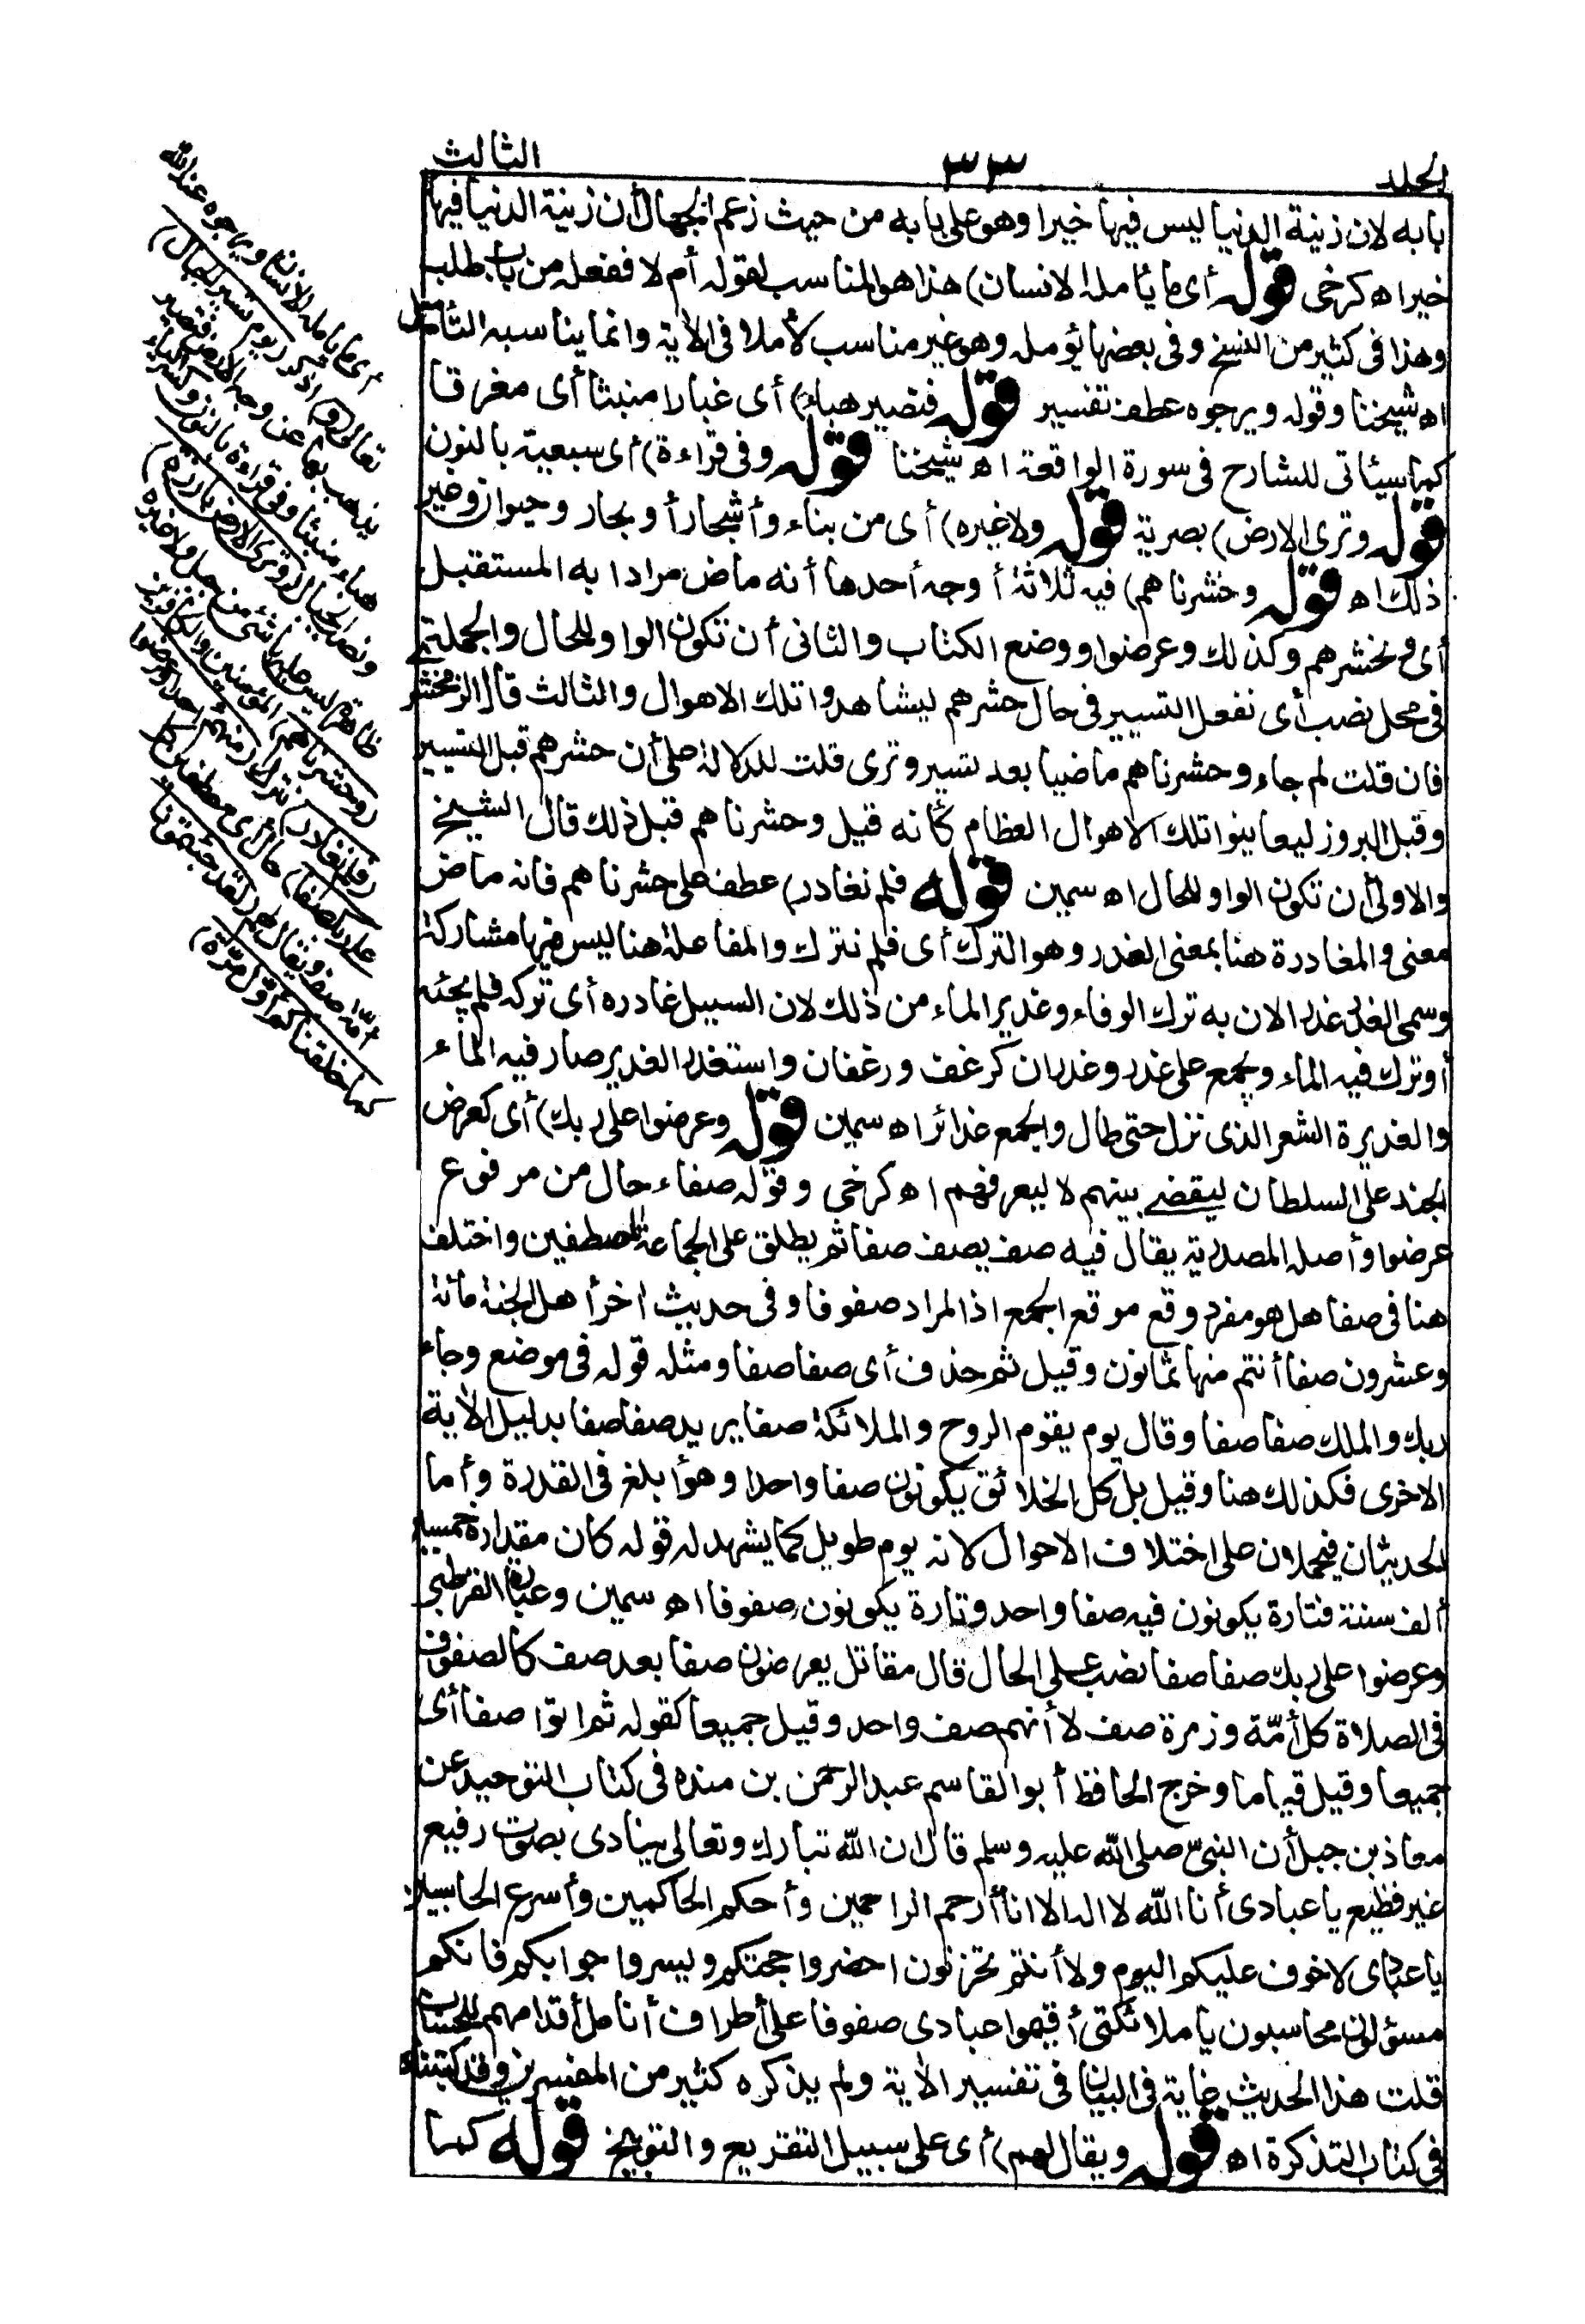 الجلد ٣٣ الثالث
بابه لان زينة الدنيا ليس فيها خيرا وهو على بابه من حيث زعم الجهال أن زينة الدنيا فيها
خيرا اه كرخى قوله أى ما يأمله الانسان) هذا هو المناسب لقوله أملا ففعله من باب طلب
وهذا فى كثير من النسخ وفى بعضها يؤمله وهو غير مناسب لأملا فى الآية وانما يناسبه التأميل
اه شيخنا وقوله ويرجوه عطف تفسير قوله فتصير هباء) أى غبارا منبثا أى مفرقا
كما سيأتى للشارح فى سورة الواقعة اه شيخنا قوله وفى قراءة) أى سبعية بالنون
قوله وترى الارض) بصرية قوله ولا غيره) أى من بناء وأشجار أو بحار وحيوان وغير
ذلك اه قوله وحشرناهم) فيه ثلاثة أوجه أحدها أنه ماض مرادا به المستقبل
أى ونحشرهم وكذلك وعرضوا ووضع الكتاب والثانى أن تكون الواو للحال والجملة
فى محل نصب أى نفعل التسيير فى حال حشرهم ليشاهدوا تلك الاهوال والثالث قال الزمخشرى
فان قلت لم جاء وحشرناهم ماضيا بعد نسير وترى قلت للدلالة على أن حشرهم قبل التسيير
وقبل البروز ليعاينوا تلك الاهوال العظام كأنه قيل وحشرناهم قبل ذلك قال الشيخ
والاولى أن تكون الواو للحال اه سمين قوله فلم نغادر) عطف على حشرناهم فانه ماض
معنى والمغادرة هنا بمعنى الغدر وهو الترك أى فلم نترك والمفاعلة هنا ليس فيها مشاركة
وسمى الغدر غدرا لان به ترك الوفاء وغدير الماء من ذلك لان السيل غادره أى تركه فلم يجئه
أو ترك فيه الماء ويجمع على غدر وغدران كرغف ورغفان واستغدر الغدير صار فيه الماء
والغديرة الشعر الذى نزل حتى طال والجمع غدائر اه سمين قوله وعرضوا على ربك) أى كعرض
الجند على السلطان ليقضى بينهم لا ليعرفهم اه كرخى وقوله صفاء حال من مرفوع
عرضوا وأصله المصدرية يقال فيه صف يصف صفا ثم يطلق على الجماعة المصطفين واختلف
هنا فى صفا هل هو مفرد وقع موقع الجمع اذ المراد صفوفا وفى حديث اخر أهل الجنة مائة
وعشرون صفا أنتم منها ثمانون وقيل ثم حذف أى صفا صفا ومثله قوله فى موضع وجاء
ربك والملك صفا صفا وقال يوم يقوم الروح والملائكة صفا يريد صفا صفا بدليل الآية
الاخرى فكذلك هنا وقيل بل كل الخلائق يكونون صفا واحدا وهو أبلغ فى القدرة وأما
الحديثان فيحملان على اختلاف الاحوال لانه يوم طويل كما يشهد له قوله كان مقداره خمسين
ألف سنة فتارة يكونون فيه صفا واحد وتارة يكونون صفوفا اه سمين وعبارة القرطبى
وعرضوا على ربك صفا صفا نصب على الحال قال مقاتل يعرضون صفا بعد صف كالصفوف
فى الصلاة كل أمّة وزمرة صف لا أنهم صف واحد وقيل جميعا كقوله ثم ائتوا صفا أى
جميعا وقيل قياما وخرج الحافظ أبو القاسم عبد الرحمن بن منده فى كتاب التوحيد عن
معاذ بن جبل أن النبىّ صلى الله عليه وسلم قال ان الله تبارك وتعالى ينادى بصوت رفيع
غير فظيع يا عبادى أنا الله لا اله الا انا أرحم الراحمين وأحكم الحاكمين وأسرع الحاسبين
يا عبادى لا خوف عليكم اليوم ولا أنتم تحزنون احضروا حجتكم ويسروا جوابكم فانكم
مسؤلون محاسبون يا ملائكتى أقيموا عبادى صفوفا على أطراف أنامل أقدامهم للحساب
قلت هذا الحديث غاية فى البيان فى تفسير الآية ولم يذكره كثير من المفسرين وقد كتبناه
فى كتاب التذكرة اه قوله ويقال لهم) أى على سبيل التقريع والتوبيخ قوله كما
أى ما يأمله الانسان ويرجوه عند الله
تعالى (و) اذكر (يوم نسير الجبال)
يذهب بها عن وجه الارض فتصير
هباء منبثا وفى قراءة بالنون وكسر الياء
ونصب الجبال (وترى الارض بارزة)
ظاهرة ليس عليها شئ من جبل ولا غيره
(وحشرناهم) المؤمنين والكافرين
(فلم نغادر) نترك (منهم أحدا وعرضوا
على ربك صفا) حال أى مصطفين كل
أمّة صف ويقال لهم (لقد جئتمونا
كما خلقناكم أوّل مرّة)